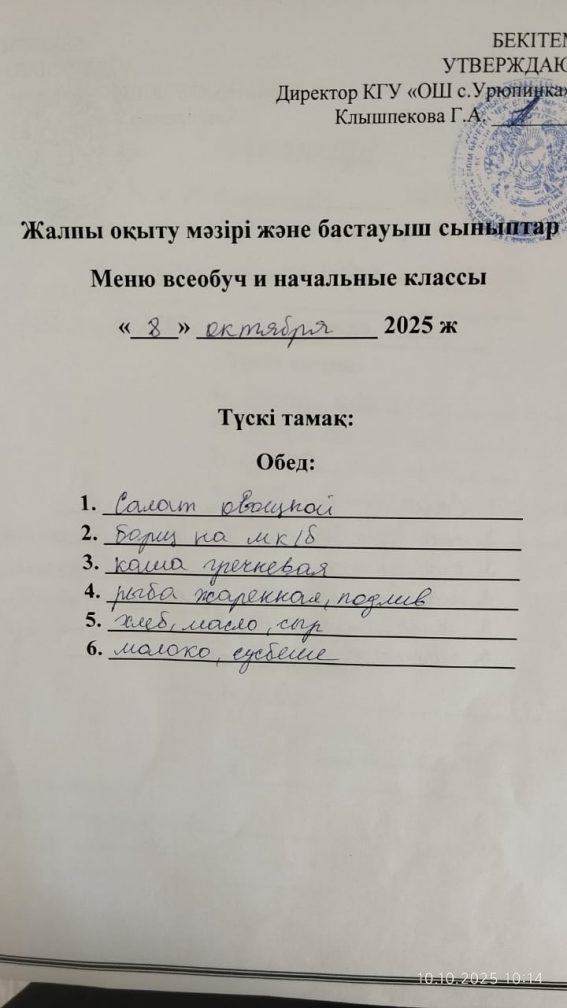 БЕКІТЕМ
УТВЕРЖДАЮ
Директор КГУ «ОШ с.Урюпинка»
Клышпекова Г.А.
Жалпы оқыту мәзірі және бастауыш сыныптар
Меню всеобуч и начальные классы
«8» октября 2025 ж
Түскі тамақ:
Обед:
1. Салат овощной
2. борщ на мк/б
3. каша гречневая
4. рыба жаренная, подлив
5. хлеб, масло, сыр
6. молоко, сусбеше
10.10.2025 10:14